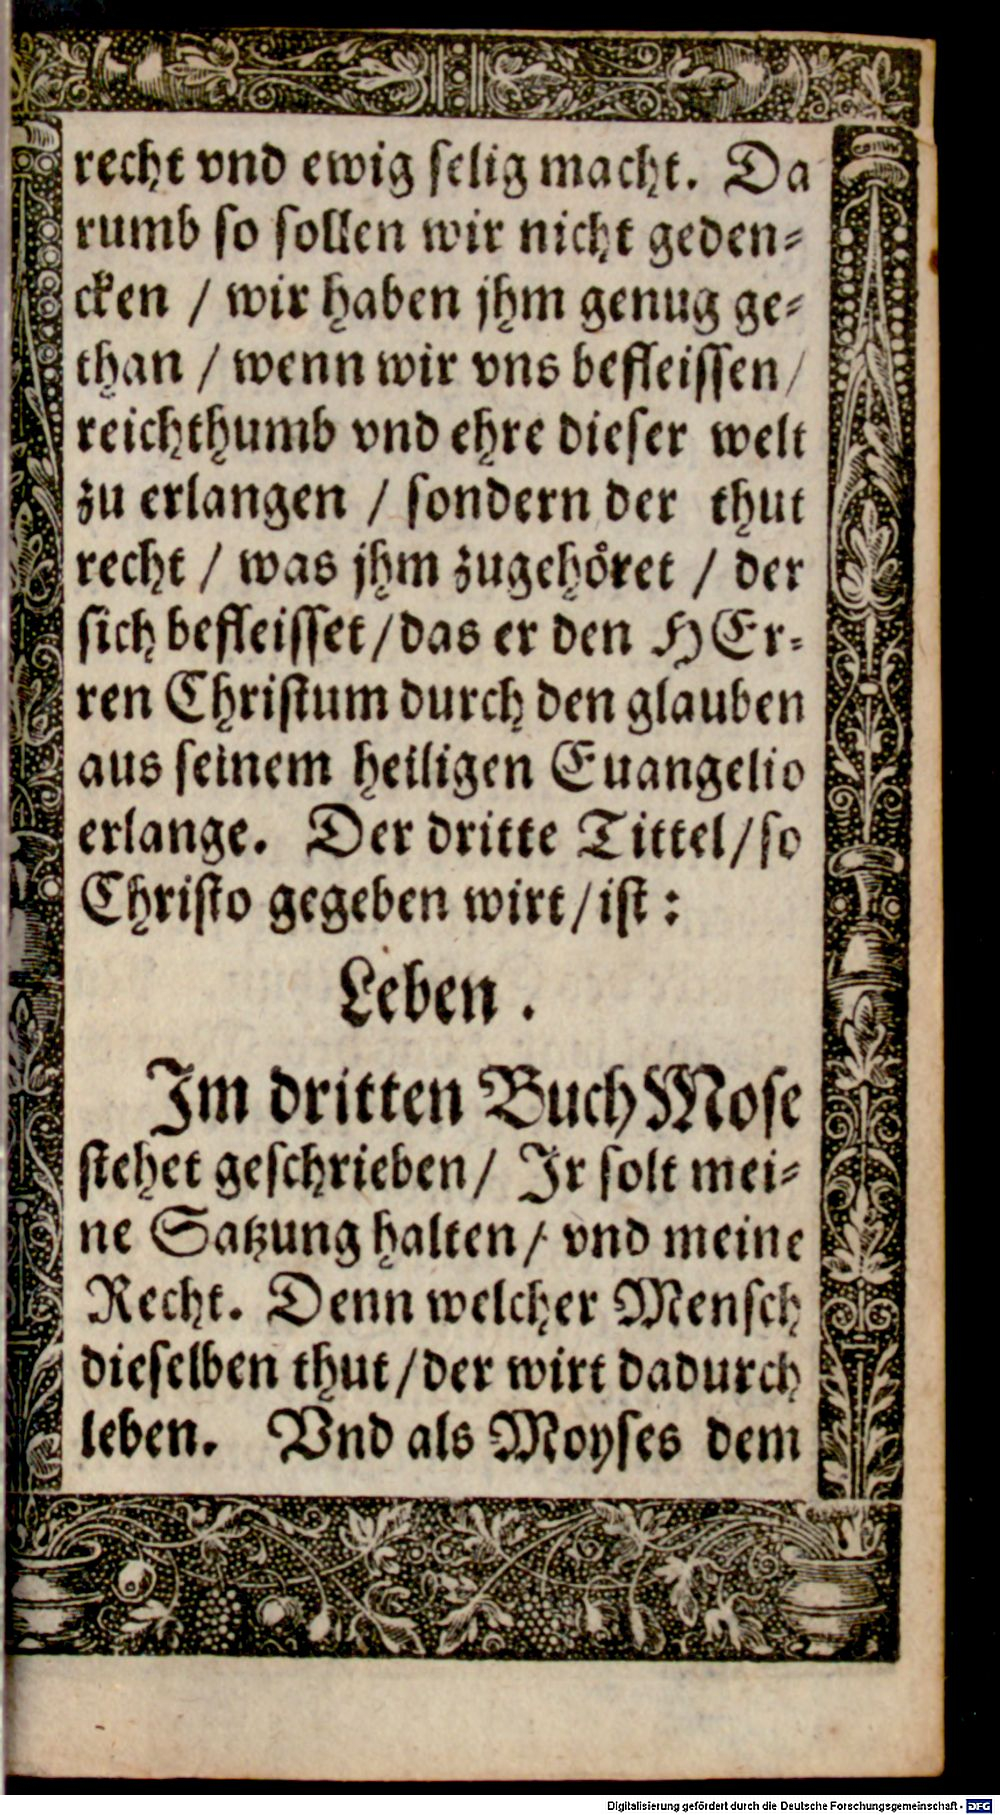 recht vnd ewig selig macht. Da
rumb so sollen wir nicht geden⸗
cken / wir haben jhm genug ge⸗
than / wenn wir vns befleissen /
reichthumb vnd ehre dieser welt
zu erlangen / sondern der thut
recht / was jhm zugehöret / der
sich befleisset / das er den HEr⸗
ren Christum durch den glauben
aus seinem heiligen Euangelio
erlange. Der dritte Tittel / so
Christo gegeben wirt / ist :
Leben .
Im dritten Buch Mose
stehet geschrieben / Ir solt mei⸗
ne Satzung halten / vnd meine
Recht. Denn welcher Mensch
dieselben thut / der wirt dadurch
leben. Vnd als Moyses dem
Digitalisierung gefördert durch die Deutsche Forschungsgemeinschaft - DFG